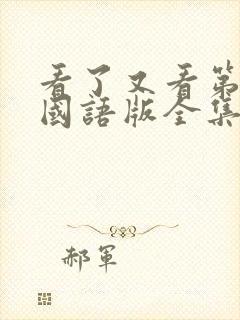 看了又看第
國語版全集
郝軍